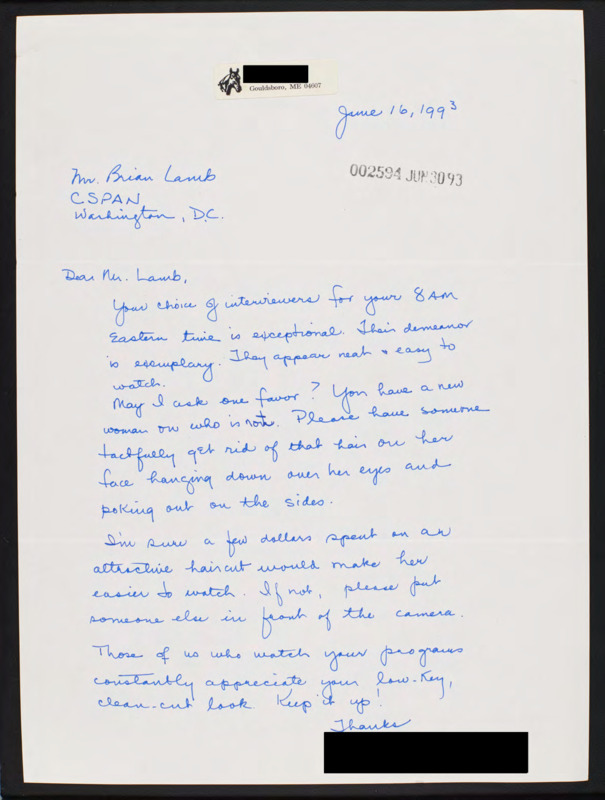 Gouldsboro, ME 04607
June 16, 1993
002594 JUN 30 93
Mr. Brian Lamb
CSPAN
Washington, D.C.
Dear Mr. Lamb,
Your choice of interviewers for your 8 AM
Eastern time is exceptional. Their demeanor
is exemplary. They appear neat & easy to
watch.
May I ask one favor? You have a new
woman on who is not. Please have someone
tactfully get rid of that hair on her
face hanging down over her eyes and
poking out on the sides.
I'm sure a few dollars spent on an
attractive haircut would make her
easier to watch. If not, please put
someone else in front of the camera.
Those of us who watch your programs
constantly appreciate your low-key,
clean-cut look. Keep it up!
Thanks